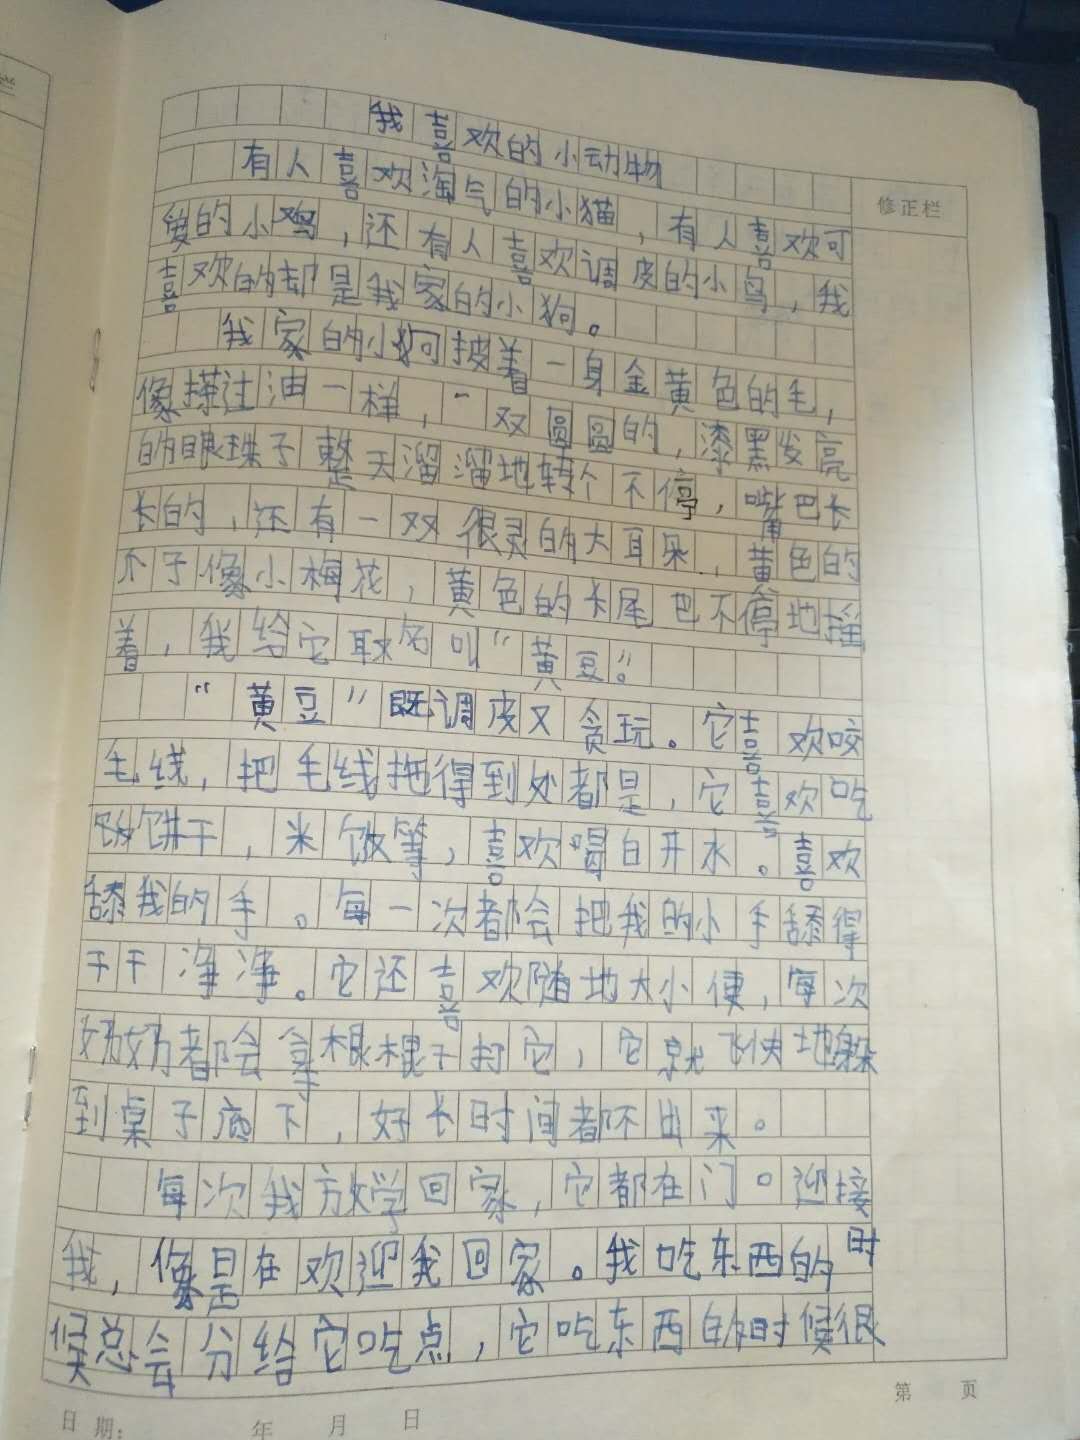 我喜欢的小动物
有人喜欢淘气的小猫，有人喜欢可
修正栏
爱的小鸡，还有人喜欢调皮的小鸟，我
喜欢的却是我家的小狗。
我家的小狗披着一身金黄色的毛，
像搽过油一样，一双圆圆的，漆黑发亮
的眼珠子整天溜溜地转个不停，嘴巴长
长的，还有一双很灵的大耳朵，黄色的
爪子像小梅花，黄色的长尾巴不停地摇
着，我给它取名叫“黄豆”。
“黄豆”既调皮又贪玩。它喜欢咬
毛线，把毛线拖得到处都是，它喜欢吃
饼干，米饭等，喜欢喝白开水。喜欢
舔我的手。每一次都会把我的小手舔得
干干净净。它还喜欢随地大小便，每次
奶奶都会拿根棍子打它，它就飞快地躲
到桌子底下，好长时间都不出来。
每次我放学回家，它都在门口迎接
我，像是在欢迎我回家。我吃东西的时
候总会分给它吃点，它吃东西的时候很
第 页
日期： 年 月 日